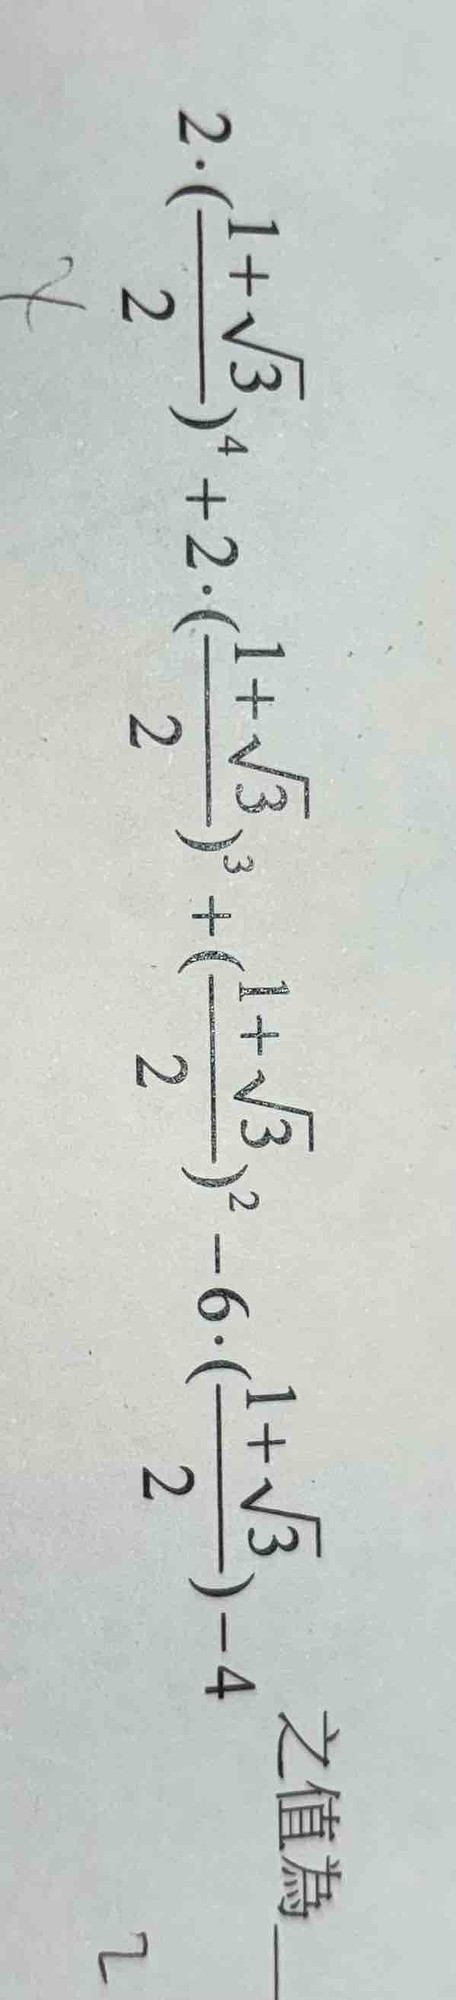 2·(\frac{1+√3}{2})^4 + 2·(\frac{1+√3}{2})^3 + (\frac{1+√3}{2})^2 − 6·(\frac{1+√3}{2}) − 4 之值為